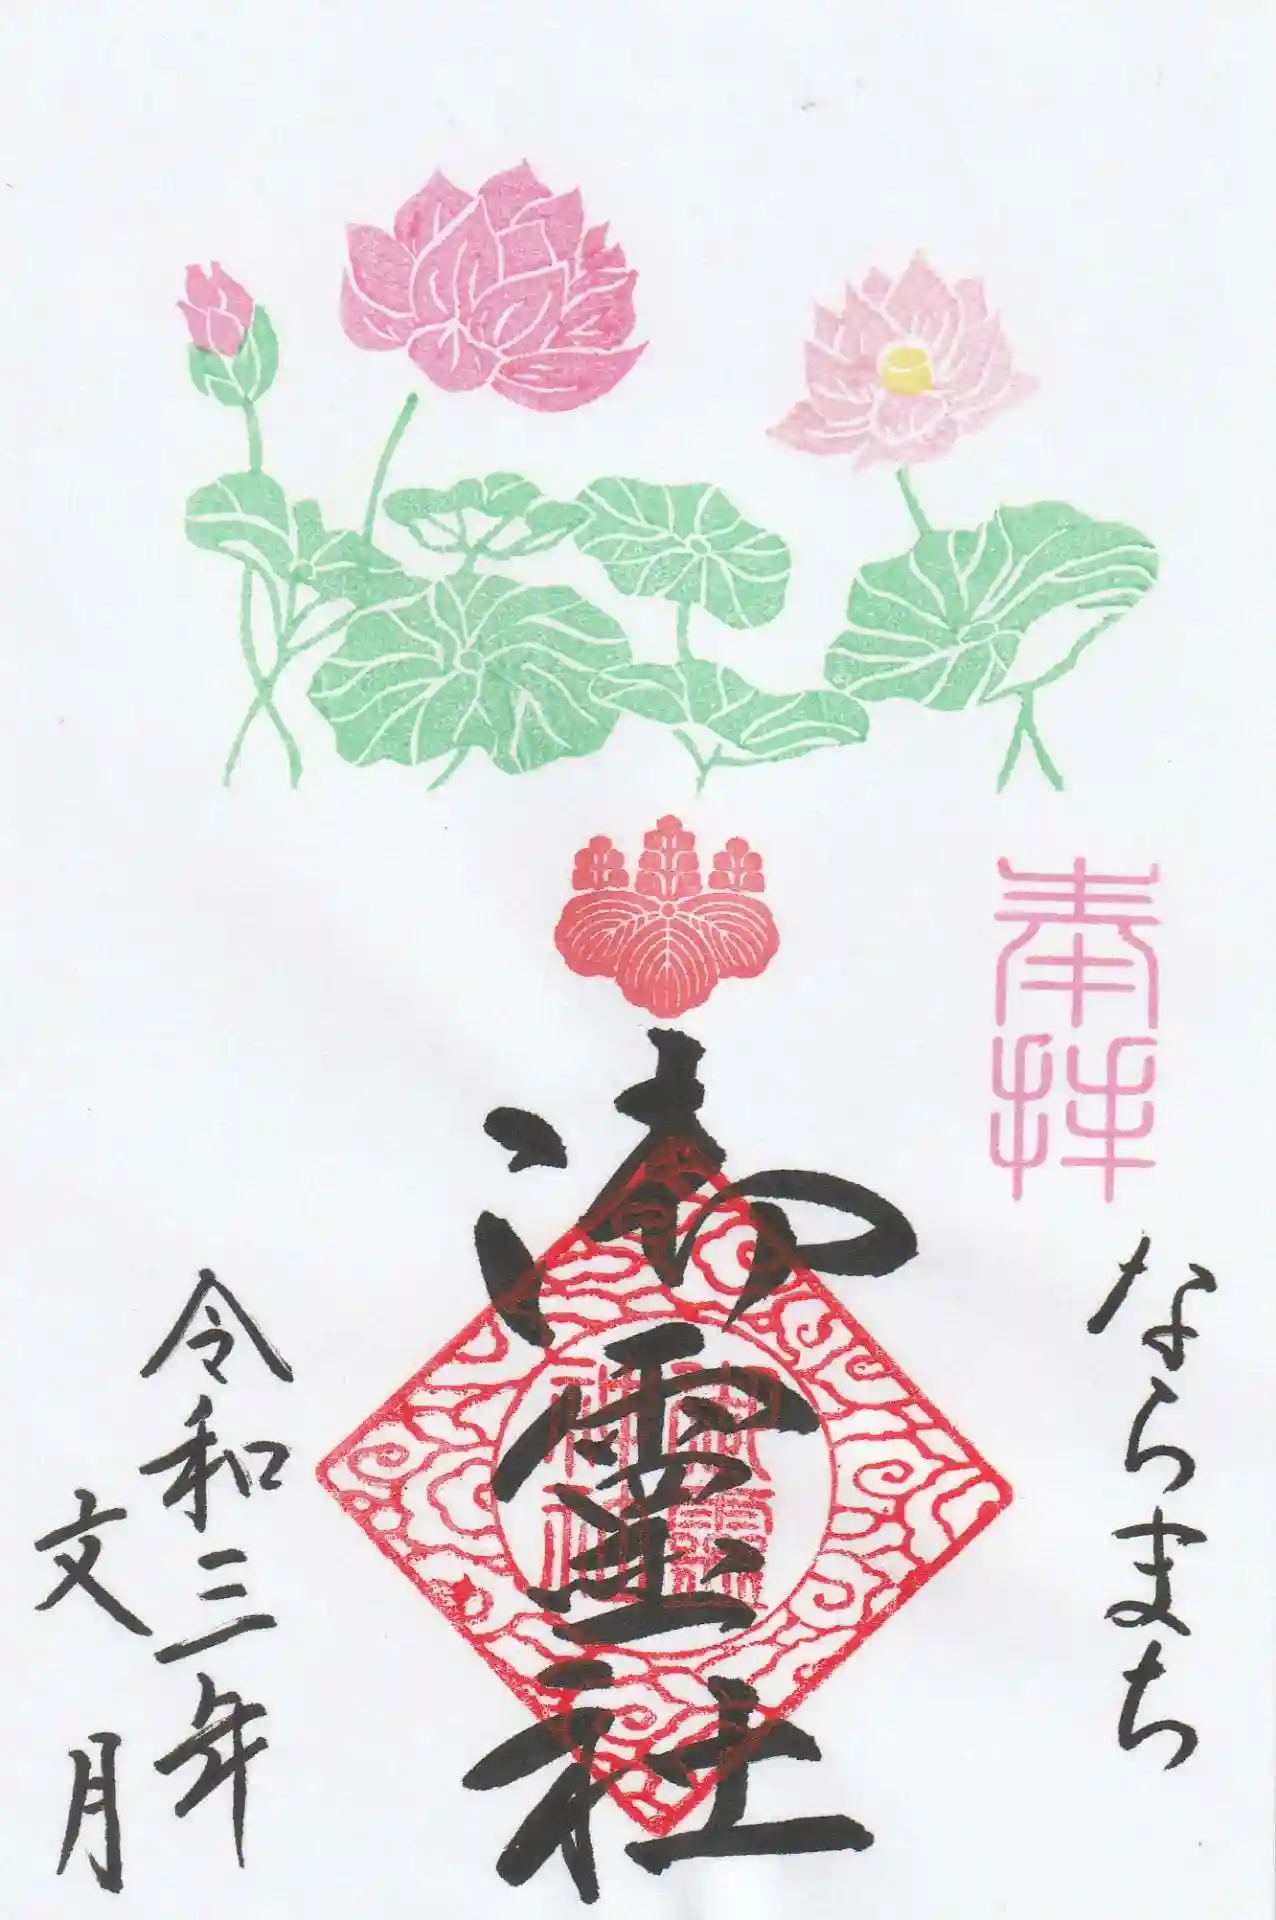 奉拝
ならまち
御霊社
御霊神社
令和三年
文月